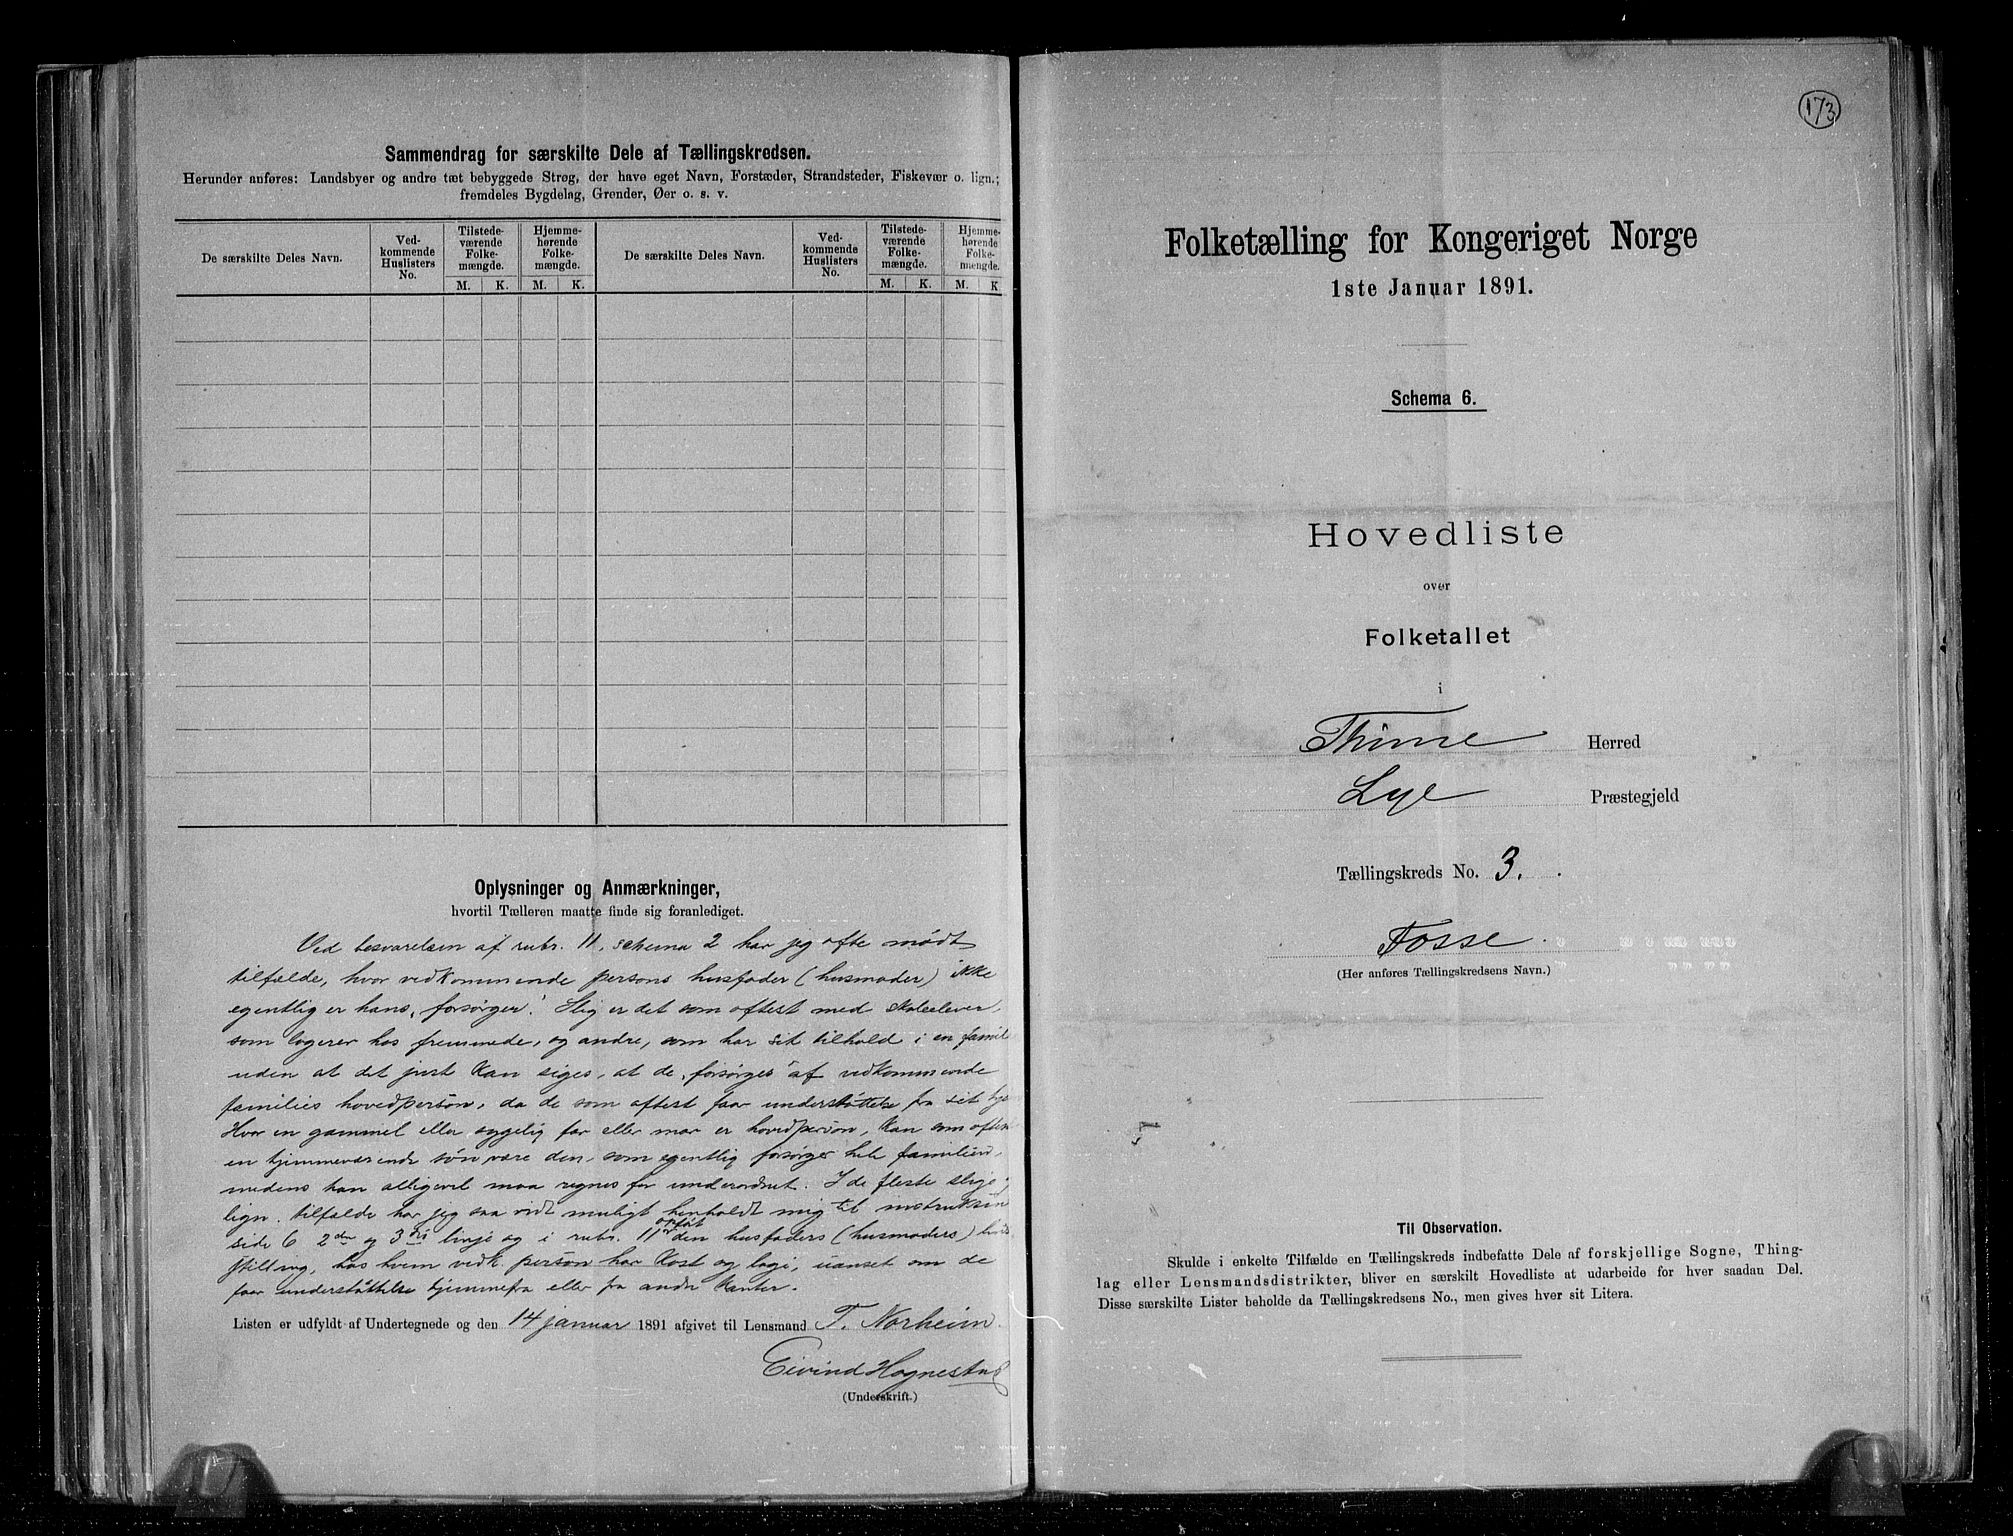 Sammendrag for særskilte Dele af Tællingskredsen.
Herunder anføres: Landsbyer og andre tæt bebyggede Strøg, der have eget Navn, Forstæder, Strandsteder, Fiskevær o. lign.;
fremdeles Bygdelag, Grender, Øer o. s. v.
De særskilte Deles Navn.
Ved-
kommende
Huslisters
No.
Tilstede-
værende
Folke-
mængde.
Hjemme-
hørende
Folke-
mængde.
M. K. M. K.
De særskilte Deles Navn.
Ved-
kommende
Huslisters
No.
Tilstede-
værende
Folke-
mængde.
Hjemme-
hørende
Folke-
mængde.
M. K. M. K
Oplysninger og Anmærkninger,
hvortil Tælleren maatte finde sig foranlediget.
Ved besvarelsen af rubr. 11, schema 2 har jeg ofte mødt
tilfælde, hvor vedkommende persons husfader (husmoder) ikke
egentlig er hans „forsørger“. Slig er det som oftest med skoleelever,
som logerer hos fremmede, og andre, som har sit tilhold i en famil
uden at det just kan siges, at de „forsørges“ af vedkommende
families hovedperson, da de som oftest faar understøttelse fra sit hje
Hvor en gammel eller sygelig far eller mor er hovedperson, kan som oftest
en hjemmeværende søn være den, som egentlig forsørger hele familien,
medens han alligevel maa regnes for underordnet. I de fleste slige
lign. tilfælde har jeg saa vidt muligt henholdt mig til instruksen
side 6 2den og 3die linje og i rubr. 11 opført den husfaders (husmoders)
stilling, hos hvem vedk. person har kost og logi, uanset om de
faar understøttelse hjemmefra eller fra andre kanter.
Listen er udfyldt af Undertegnede og den 14 januar 1891 afgivet til Lensmand T. Norheim.
Eivind Hognestad
(Underskrift.)
173
Folketælling for Kongeriget Norge
1ste Januar 1891.
Schema 6.
Hovedliste
over
Folketallet
i
Thime Herred
Lye Præstegjeld
Tællingskreds No. 3.
Fosse
(Her anføres Tællingskredsens Navn.)
Til Observation.
Skulde i enkelte Tilfælde en Tællingskreds indbefatte Dele af forskjellige Sogne, Thing-
lag eller Lensmandsdistrikter, bliver en særskilt Hovedliste at udarbeide for hver saadan Del.
Disse særskilte Lister beholde da Tællingskredsens No., men gives hver sit Litera.